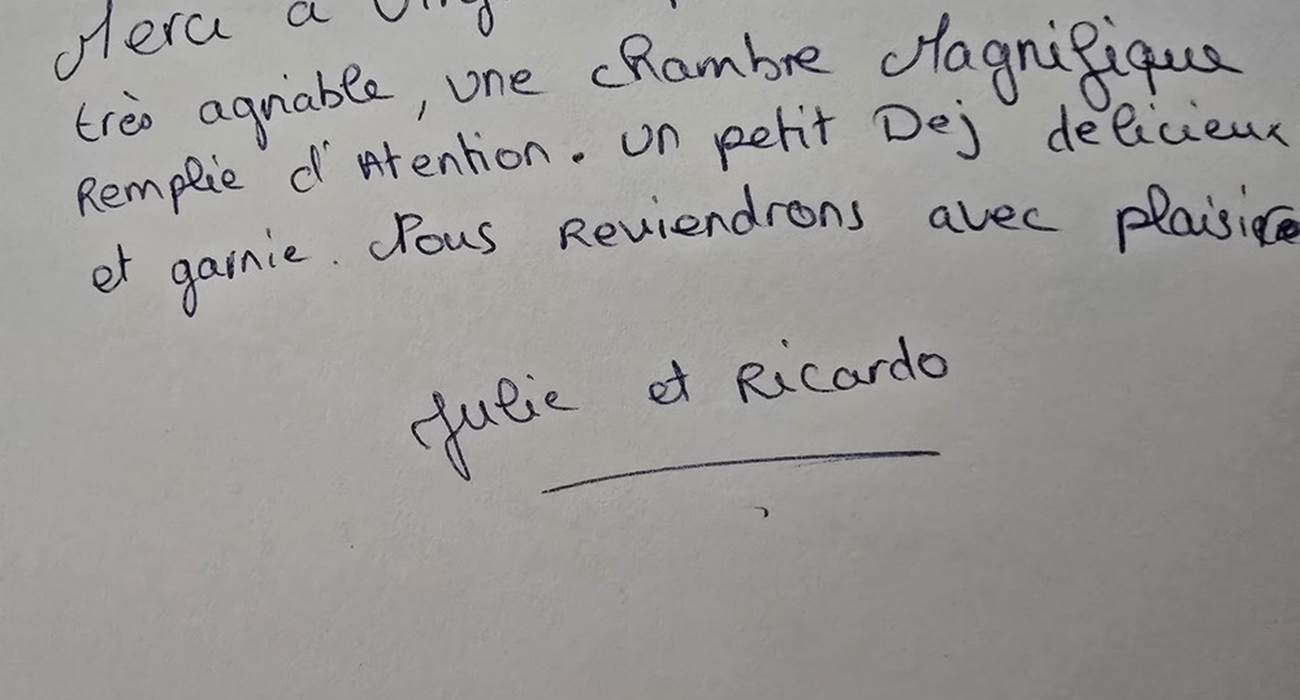 Merci à
très agriable, une chambre Magnifique
Remplie d'Atention. un petit Dej délicieux
et garnie. Nous Reviendrons avec plaisir
Julie et Ricardo